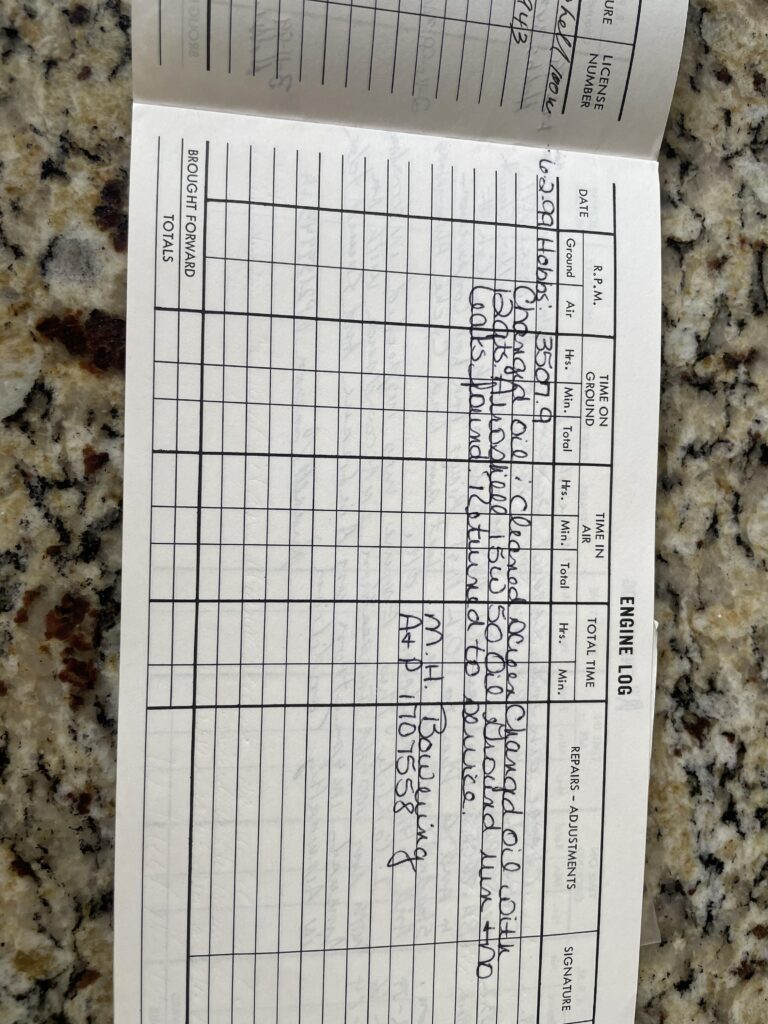 URE
LICENSE
NUMBER
943
ENGINE LOG
DATE
R.P.M.
Ground
Air
TIME ON
GROUND
Hrs.
Min.
Total
TIME IN
AIR
Hrs.
Min.
Total
TOTAL TIME
Hrs.
Min.
REPAIRS – ADJUSTMENTS
SIGNATURE
6-2-99 Hobbs: 3507.9
Changed oil; cleaned screen Changd oil with
12qts Aeroshell 15W50 Oil Ground run + no
leaks found. Returned to service.
M. H. Bowering
A+P 1707558
BROUGHT FORWARD
TOTALS